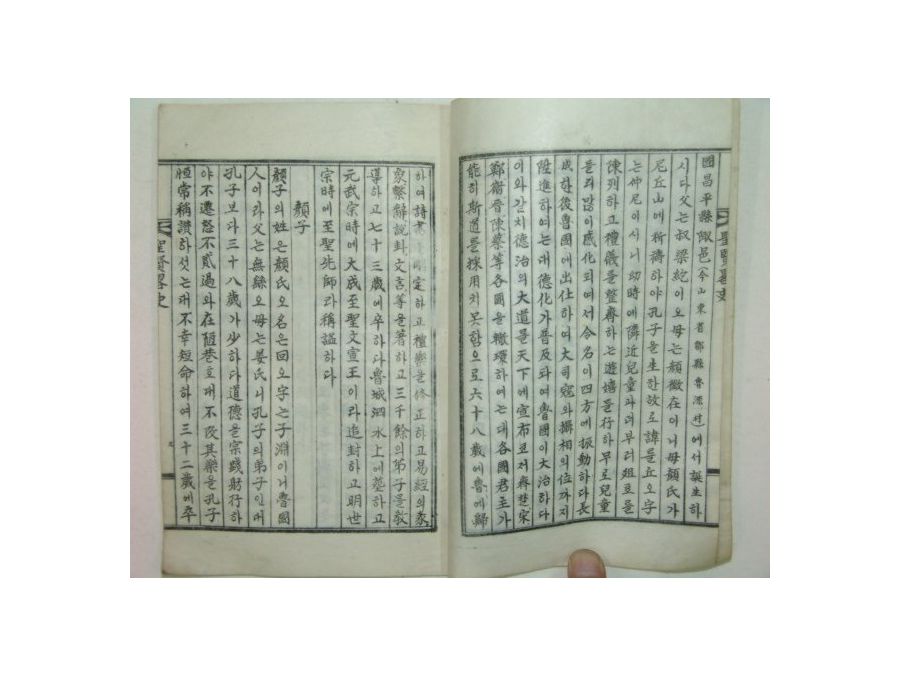 聖賢畧史
國昌平縣陬邑(今山東省鄒縣魯源村)에서誕生하
시다父는叔梁紇이오母는顔徵在이니母顔氏가
尼丘山에祈禱하야孔子을生한故로諱를丘오字
는仲尼이시니幼時에隣近兒童과더부러俎豆를
陳列하고禮儀를整齊하는遊嬉를行하무로兒童
들리많이感化되여서令名이四方에振動하다長
成한後魯國에出仕하여大司寇와攝相의位까지
陞進하여는대德化가普及되여魯國이大治하다
이와같치德治의大道를天下에宣布코저齊楚宋
鄭衛晉陳蔡等各國을轍環하여는대各國君主가
能히斯道를採用치못함으로六十八歲에魯에歸
하여詩書 刪定하고禮樂을修正하고易經의彖
象繫辭說卦文言等을著하고三千餘의弟子를敎
導하고七十三歲에卒하다魯城泗水上에葬하고
元武宗時에大成至聖文宣王이라追封하고明世
宗時에至聖先師라稱謚하다
顔子
顔子의姓은顔氏오名은回오字는子淵이니魯國
人이라父는無繇오母는姜氏니孔子의弟子인대
孔子보다三十八歲가少하다道德을宗踐躬行하
야不遷怒不貳過와在陋巷호대不改其樂을孔子
恒常稱讚하섯는대不幸短命하여三十二歲에卒
聖賢畧史